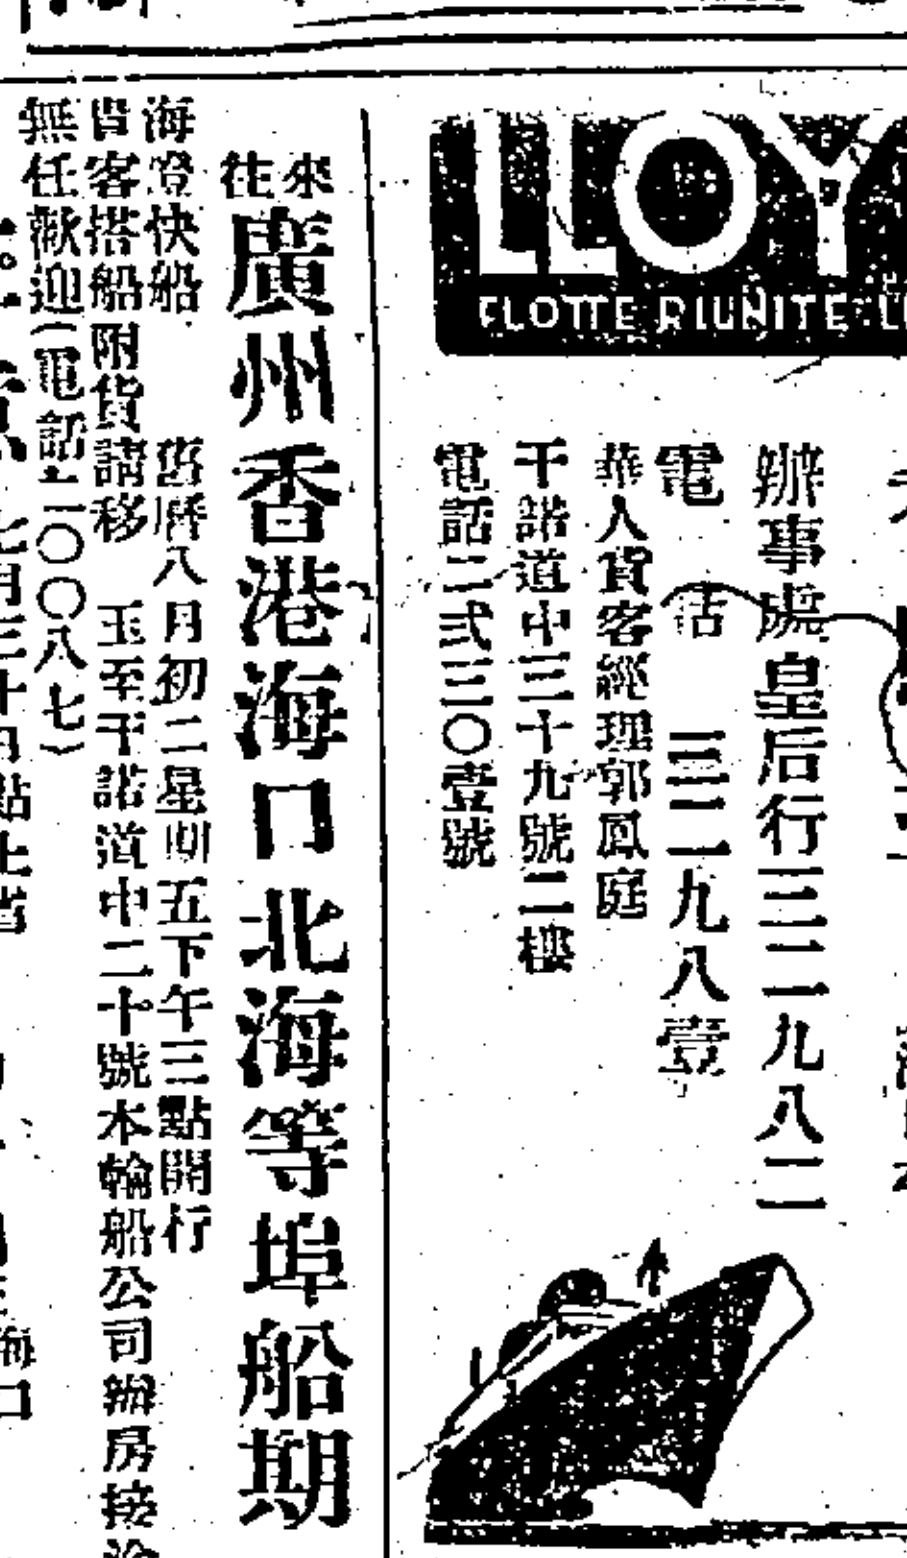 LLOY
FLOTTE RIUNITE
辦事處皇后行三二九八二
電話 三二九八壹
華人貨客經理郭鳳庭
干諾道中三十九號二樓
電話二弍三〇壹號
來往
廣州香港海口北海等埠船期
海澄快船 舊曆八月初二星期五下午三點開行
貴客搭船附貨請移 玉至干諾道中二十號本輪船公司辦房接洽
無任歡迎(電話二一〇〇八七)